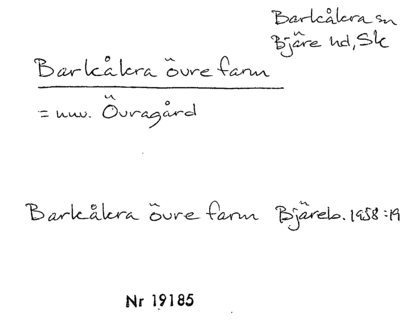 Barkåkra sn
Bjäre hd, Sk
Barkåkra övre farm
= nuv. Övragård
Barkåkra övre farm Bjäreb. 1958:19
Nr 19185